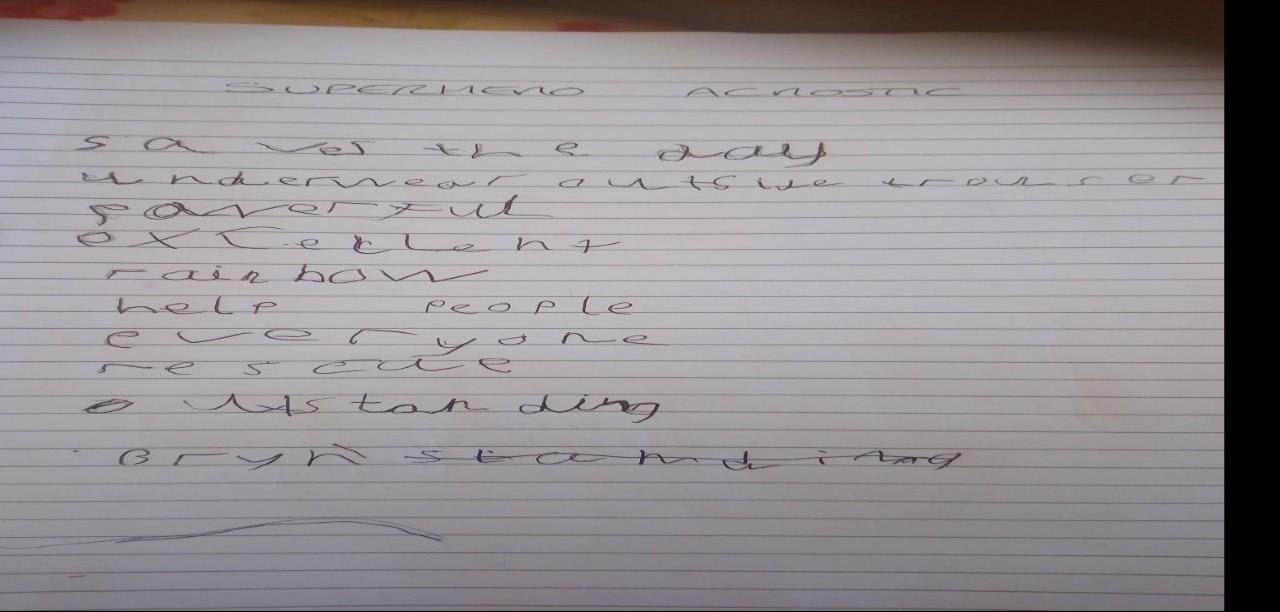 SUPERHERO ACROSTIC
saves the day
underwear outside trouser
powerful
excellent
rainbow
help people
everyone
rescue
outstanding
Bryn standing